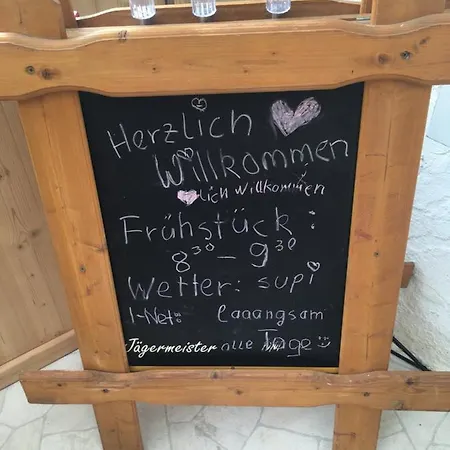 Herzlich
Willkommen
lich willkommen
Frühstück :
8³⁰ – 9³⁰
Wetter: supi
I-Net: laaangsam
Jägermeister alle Tage